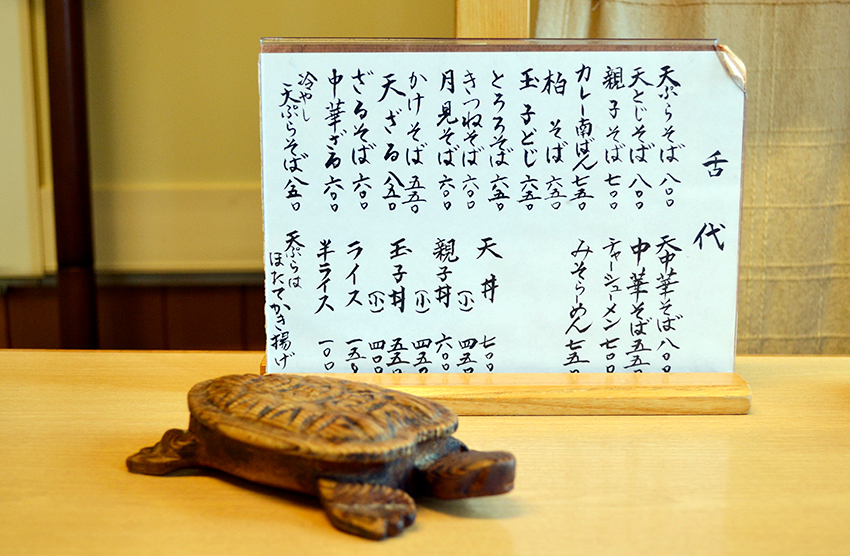 舌代
天ぷらそば 八〇〇
天とじそば 八〇〇
親子そば 七〇〇
カレー南ばん 七五〇
柏そば 六五〇
玉子とじ 六五〇
とろろそば 六五〇
きつねそば 六〇〇
月見そば 六〇〇
かけそば 五五〇
天ざる 八五〇
ざるそば 六〇〇
中華ざる 六〇〇
冷やし
天ぷらそば 八五〇
天中華そば 八〇〇
中華そば 五五〇
チャーシューメン 七〇〇
みそらーめん 七五〇
天丼 七〇〇
(小) 四五〇
親子丼 六〇〇
(小) 四五〇
玉子丼 五五〇
(小) 四〇〇
ライス 一五〇
半ライス 一〇〇
天ぷらは
ほたてかき揚げ